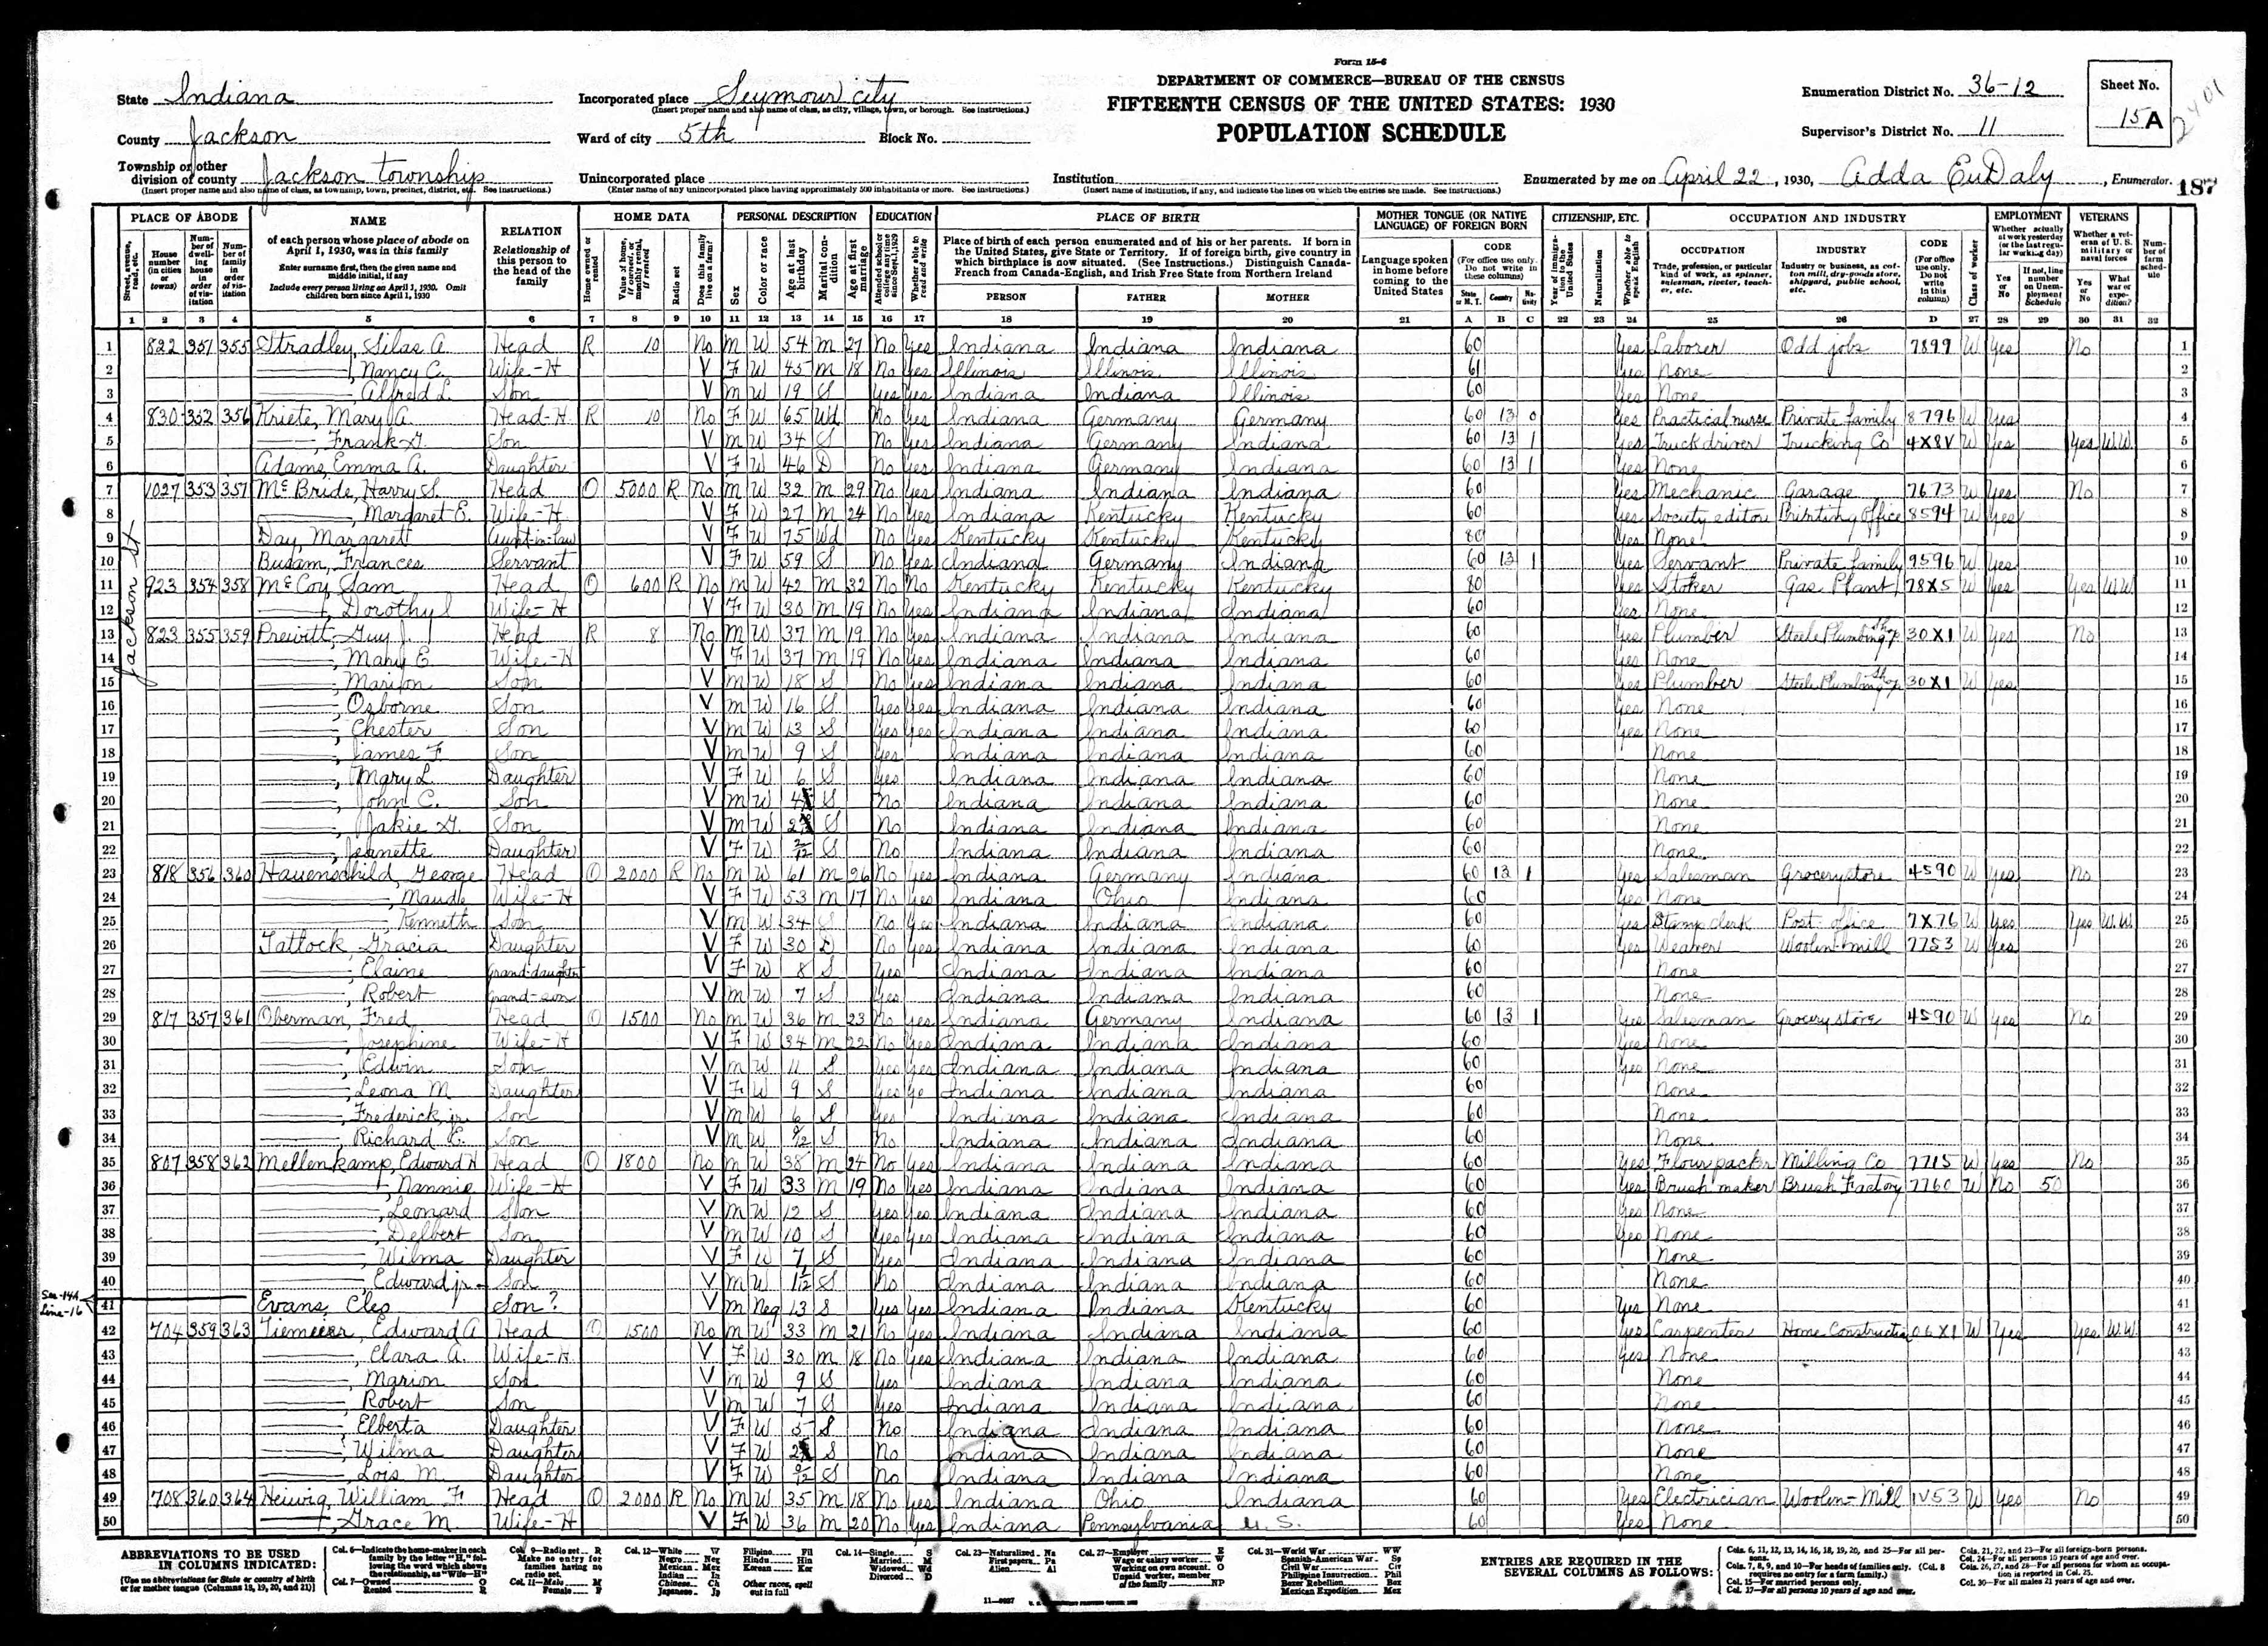 Form 15-6
DEPARTMENT OF COMMERCE—BUREAU OF THE CENSUS
FIFTEENTH CENSUS OF THE UNITED STATES: 1930
POPULATION SCHEDULE
State Indiana
County Jackson
Township or other division of county Jackson township
(Insert proper name and also name of class, as township, town, precinct, district, etc. See instructions.)
Incorporated place Seymour city
(Insert proper name and also name of class, as city, village, town, or borough. See instructions.)
Ward of city 5th Block No.
Unincorporated place
(Enter name of any unincorporated place having approximately 500 inhabitants or more. See instructions.)
Institution
(Insert name of institution, if any, and indicate the lines on which the entries are made. See instructions.)
Enumeration District No. 36-12
Supervisor's District No. 11
Sheet No. 15 A
2401
Enumerated by me on April 22, 1930, Adda EuDaly, Enumerator.
187
PLACE OF ABODE NAME RELATION HOME DATA PERSONAL DESCRIPTION EDUCATION PLACE OF BIRTH MOTHER TONGUE (OR NATIVE LANGUAGE) OF FOREIGN BORN CITIZENSHIP, ETC. OCCUPATION AND INDUSTRY EMPLOYMENT VETERANS
PERSON FATHER MOTHER
1 2 3 4 5 6 7 8 9 10 11 12 13 14 15 16 17 18 19 20 21 A B C 22 23 24 25 26 D 27 28 29 30 31 32
Jackson St
1 822 351 355 Stradley, Silas A. Head R 10 No M W 54 M 27 No Yes Indiana Indiana Indiana 60 Yes Laborer Odd jobs 7899 W Yes No 1
2 Nancy C. Wife-H V F W 45 M 18 No Yes Illinois Illinois Illinois 61 Yes None 2
3 Alfred L. Son V M W 19 S Yes Yes Indiana Indiana Illinois 60 Yes None 3
4 830 352 356 Kriete, Mary A. Head-H R 10 No F W 65 Wd No Yes Indiana Germany Germany 60 13 0 Yes Practical nurse Private family 8796 W Yes 4
5 Frank G. Son V M W 34 S No Yes Indiana Germany Indiana 60 13 1 Yes Truck driver Trucking Co 4X8V W Yes Yes WW 5
6 Adams, Emma A. Daughter V F W 46 D No Yes Indiana Germany Indiana 60 13 1 Yes None 6
7 1027 353 357 McBride, Harry S. Head O 5000 R No M W 32 M 29 No Yes Indiana Indiana Indiana 60 Yes Mechanic Garage 7673 W Yes No 7
8 Margaret E. Wife-H V F W 27 M 24 No Yes Indiana Kentucky Kentucky 60 Yes Society editor Printing Office 8594 W Yes 8
9 Day, Margaret Aunt-in-law V F W 75 Wd No Yes Kentucky Kentucky Kentucky 80 Yes None 9
10 Busam, Frances Servant V F W 59 S No Yes Indiana Germany Indiana 60 13 1 Yes Servant Private family 9596 W Yes 10
11 923 354 358 McCoy, Sam Head O 600 R No M W 42 M 32 No No Kentucky Kentucky Kentucky 80 Yes Stoker Gas Plant 78X5 W Yes Yes WW 11
12 Dorothy Wife-H V F W 30 M 19 No Yes Indiana Indiana Indiana 60 Yes None 12
13 823 355 359 Prewitt, Guy J. Head R 8 No M W 37 M 19 No Yes Indiana Indiana Indiana 60 Yes Plumber Steele Plumbing Shop 30X1 W Yes No 13
14 Mary E. Wife-H V F W 37 M 19 No Yes Indiana Indiana Indiana 60 Yes None 14
15 Marion Son V M W 18 S No Yes Indiana Indiana Indiana 60 Yes Plumber Steele Plumbing Shop 30X1 W Yes 15
16 Osborne Son V M W 16 S Yes Yes Indiana Indiana Indiana 60 Yes None 16
17 Chester Son V M W 13 S Yes Yes Indiana Indiana Indiana 60 Yes None 17
18 James F. Son V M W 9 S Yes Indiana Indiana Indiana 60 None 18
19 Mary L. Daughter V F W 6 S Yes Indiana Indiana Indiana 60 None 19
20 John C. Son V M W 4 S No Indiana Indiana Indiana 60 None 20
21 Jakie G. Son V M W 2 S No Indiana Indiana Indiana 60 None 21
22 Jeanette Daughter V F W S No Indiana Indiana Indiana 60 None 22
23 818 356 360 Hauenschild, George Head O 2000 R No M W 61 M 26 No Yes Indiana Germany Indiana 60 13 1 Yes Salesman Grocery store 4590 W Yes No 23
24 Maude Wife-H V F W 53 M 17 No Yes Indiana Ohio Indiana 60 Yes None 24
25 Kenneth Son V M W 34 S No Yes Indiana Indiana Indiana 60 Yes Stamp clerk Post office 7X76 W Yes Yes W.W. 25
26 Tatlock, Gracia Daughter V F W 30 D No Yes Indiana Indiana Indiana 60 Yes Weaver Woolen-mill 7753 W Yes 26
27 Elaine Grand-daughter V F W 8 S Yes Indiana Indiana Indiana 60 None 27
28 Robert Grand-son V M W 7 S Yes Indiana Indiana Indiana 60 None 28
29 817 357 361 Oberman, Fred Head O 1500 No M W 36 M 23 No Yes Indiana Germany Indiana 60 13 1 Yes Salesman Grocery store 4590 W Yes No 29
30 Josephine Wife-H V F W 34 M 22 No Yes Indiana Indiana Indiana 60 Yes None 30
31 Edwin Son V M W 11 S Yes Yes Indiana Indiana Indiana 60 Yes None 31
32 Leona M Daughter V F W 9 S Yes Indiana Indiana Indiana 60 None 32
33 Frederick, jr. Son V M W 6 S Yes Indiana Indiana Indiana 60 None 33
34 Richard E. Son V M W S No Indiana Indiana Indiana 60 None 34
35 807 358 362 Mellenkamp, Edward H Head O 1800 No M W 38 M 24 No Yes Indiana Indiana Indiana 60 Yes Flour packer Milling Co 7715 W Yes No 35
36 Nannie Wife-H V F W 33 M 19 No Yes Indiana Indiana Indiana 60 Yes Brush maker Brush Factory 7760 W No 50 36
37 Leonard Son V M W 12 S Yes Yes Indiana Indiana Indiana 60 Yes None 37
38 Delbert Son V M W 10 S Yes Yes Indiana Indiana Indiana 60 Yes None 38
39 Wilma Daughter V F W 7 S Yes Indiana Indiana Indiana 60 None 39
40 Edward jr. Son V M W S No Indiana Indiana Indiana 60 None 40
See-14A Line-16
41 Evans, Cleo Son? V M Neg 13 S Yes Yes Indiana Indiana Kentucky 60 Yes None 41
42 704 359 363 Tiemeier, Edward A Head O 1500 No M W 33 M 21 No Yes Indiana Indiana Indiana 60 Yes Carpenter Home Construction 06X1 W Yes Yes W.W. 42
43 Clara A. Wife-H V F W 30 M 18 No Yes Indiana Indiana Indiana 60 Yes None 43
44 Marion Son V M W 9 S Yes Indiana Indiana Indiana 60 None 44
45 Robert Son V M W 7 S Yes Indiana Indiana Indiana 60 None 45
46 Elberta Daughter V F W 5 S No Indiana Indiana Indiana 60 None 46
47 Wilma Daughter V F W 2 S No Indiana Indiana Indiana 60 None 47
48 Lois M. Daughter V F W S No Indiana Indiana Indiana 60 None 48
49 708 360 364 Heiwig, William F Head O 2000 R No M W 35 M 18 No Yes Indiana Ohio Indiana 60 Yes Electrician Woolen-Mill 1V53 W Yes No 49
50 Grace M. Wife-H V F W 36 M 20 No Yes Indiana Pennsylvania U.S. 60 Yes None 50
ABBREVIATIONS TO BE USED IN COLUMNS INDICATED:
[Use no abbreviations for State or country of birth or for mother tongue (Columns 18, 19, 20, and 21)]
ENTRIES ARE REQUIRED IN THE SEVERAL COLUMNS AS FOLLOWS: